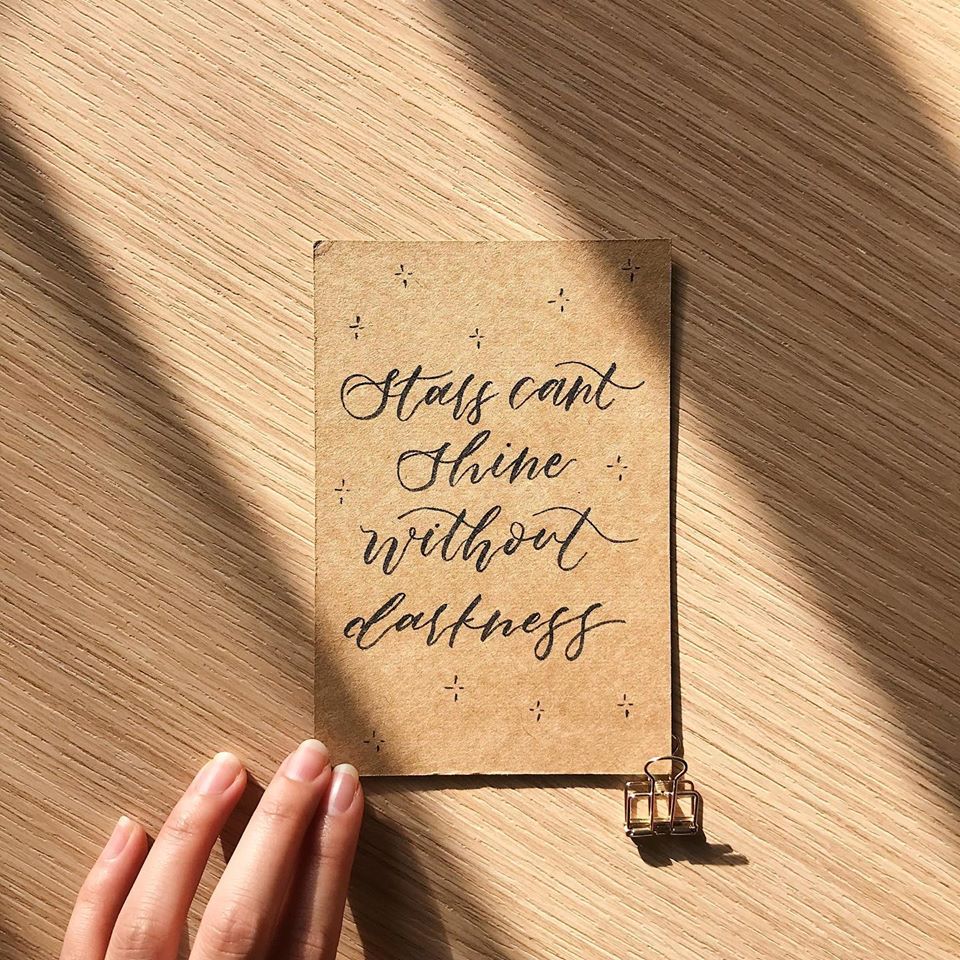 Stars cant
shine
without
darkness